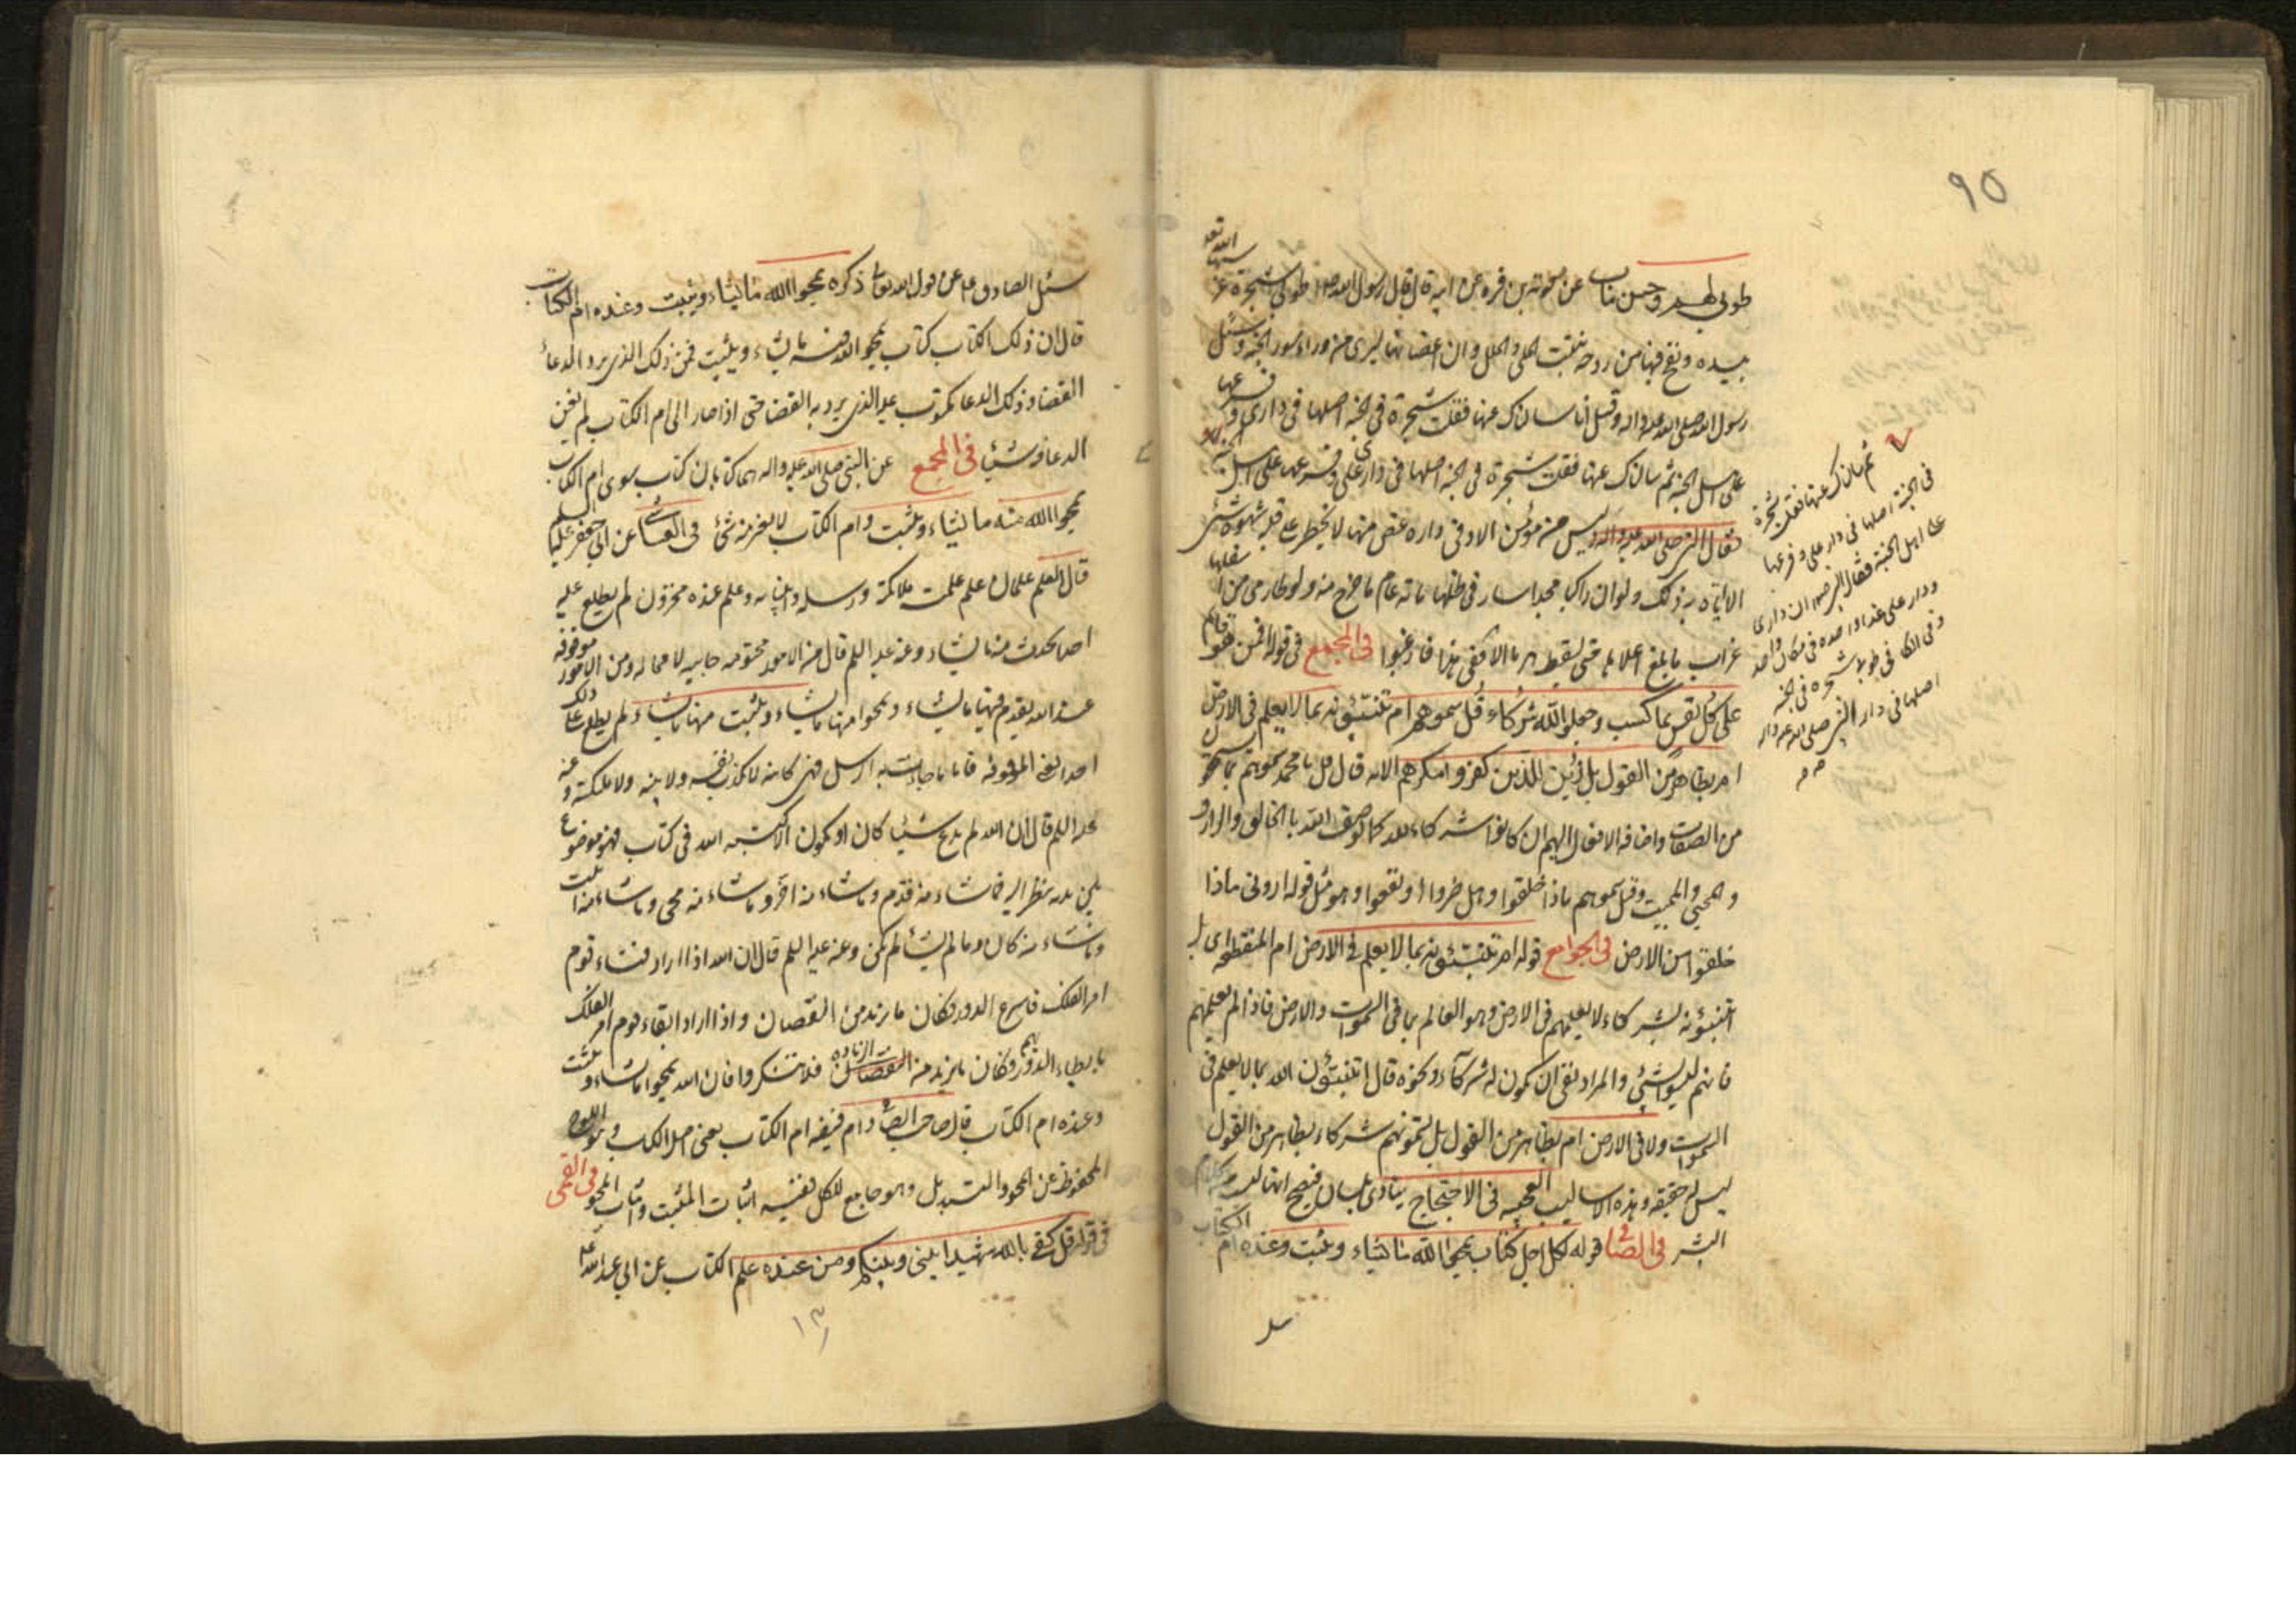 ٩٥
طوبى لهم وحسن مآب عن معوية بن قره عن ابيه قال قال رسول الله ص طوبى شجرة غرسها الله تعه
بيده ونفخ فيها من روحه تنبت الحلى والحلل وان اغصانها ليرى من وراء سور الجنة وسئل
رسول الله صلى الله عليه واله وقيل انا سالناك عنها فقلت شجرة فى الجنة اصلها فى دارى وفرعها
على اهل الجنة ثم سالناك عنها فقلت شجرة فى الجنة اصلها فى دار على وفرعها على اهل الجنة
فقال النبى صلى الله عليه واله وليس من مؤمن الا وفى داره غصن منها لا يخطر على قلبه شهوة شئ
الا اتاه به ذلك ولو ان راكبا مجدا سار فى ظلها مائة عام ما خرج منه ولو طار من اسفلها
غراب ما بلغ اعلاها حتى يسقط هرما الا ففى هذا فارغبوا فى المجمع فى قوله افمن هو قائم
على كل نفس بما كسبت وجعلوا لله شركاء قل سموهم ام تنبئونه بما لا يعلم فى الارض
ام بظاهر من القول بل زين للذين كفروا مكرهم الايه قال قل يا محمد سموهم بما
من الصفات واضافة الافعال اليهم ان كانوا شركاء لله كما يوصف الله بالخالق والرازق
والمحيى والمميت وقيل سموهم ماذا خلقوا وهل ضروا او نفعوا وهو مثل قوله ارونى ماذا
خلقوا من الارض فى الجوامع قوله ام تنبئونه بما لا يعلم فى الارض ام المنقطعه اى بل
اتنبئونه بشركاء لا يعلمهم فى الارض وهو العالم بما فى السموات والارض فاذا لم يعلمهم
فانهم ليسوا بشئ والمراد نفى ان يكون له شركاء ونحوه قال اتنبئون الله بما لا يعلم فى
السموات ولا فى الارض ام بظاهر من القول بل تسمونهم شركاء بظاهر من القول
ليس له حقيقه وهذه الاساليب العجيبه فى الاحتجاج ينادى بلسان فصيح انها ليست من كلام
البشر فى الصافى قوله لكل اجل كتاب يمحوا الله ما يشاء ويثبت وعنده ام الكتاب
ثم سالناك عنها فقلت شجرة
فى الجنة اصلها فى دار على وفرعها
على اهل الجنة فقال النبى ص ان دارى
ودار على غدا واحده فى مكان واحد
وفى الكافى طوبى شجره فى الجنه
اصلها فى دار النبى صلى الله عليه واله
سئل الصادق ع عن قول الله تعالى ذكره يمحوا الله ما يشاء ويثبت وعنده ام الكتاب
قال ان ذلك الكتاب كتاب يمحو الله فيه ما يشاء ويثبت فمن ذلك الذى يرد الدعاء
القضاء وذلك الدعا مكتوب عليه الذى يرد به القضا حتى اذا صار الى ام الكتاب لم يغن
الدعا فيه شيئا فى المجمع عن النبى صلى الله عليه واله هما كتابان كتاب سوى ام الكتاب
يمحوا الله منه ما يشاء ويثبت وام الكتاب لا يغير منه شئ فى العياشى عن ابى جعفر عليه السلم
قال العلم علمان علم علمه ملائكته ورسله وانبيائه وعلم عنده مخزون لم يطلع عليه
احدا يحدث فيه ما يشاء وعنه عليه السلم قال من الامور محتومه جاييه لا محاله ومن الامور موقوفه
عند الله يقدم فيها ما يشاء ويمحوا منها ما يشاء ويثبت منها ما يشاء لم يطلع على ذلك
احدا يعنى الموقوفه فاما ما جاءت به الرسل فهى كائنه لا يكذب نفسه ولا نبيه ولا ملائكته وعنه
عليه السلم قال ان الله لم يدع شيئا كان او يكون الا كتبه الله فى كتاب فهو موضوع
بين يديه ينظر اليه فما شاء منه قدم وما شاء منه اخر وما شاء منه محى وما شاء منه اثبت
وما شاء منه كان وما لم يشأ لم يكن وعنه عليه السلم قال ان الله اذا اراد فناء قوم
امر الفلك فاسرع الدور فكان ما يريد من النقصان واذا اراد بقاء قوم امر الفلك
بابطاء الدور بهم فكان ما يزيد من الزياده فلا تنكروا فان الله يمحوا ما يشاء ويثبت
وعنده ام الكتاب قال صاحب الصافى وام فيفه ام الكتاب يعنى اصل الكتاب وهو اللوح
المحفوظ عن المحو والتبديل وهو جامع للكل ففيه اثبات المثبت واثبات المحو فى القمى
فى قوله قل كفى بالله شهيدا بينى وبينكم ومن عنده علم الكتاب عن ابى عبد الله عليه